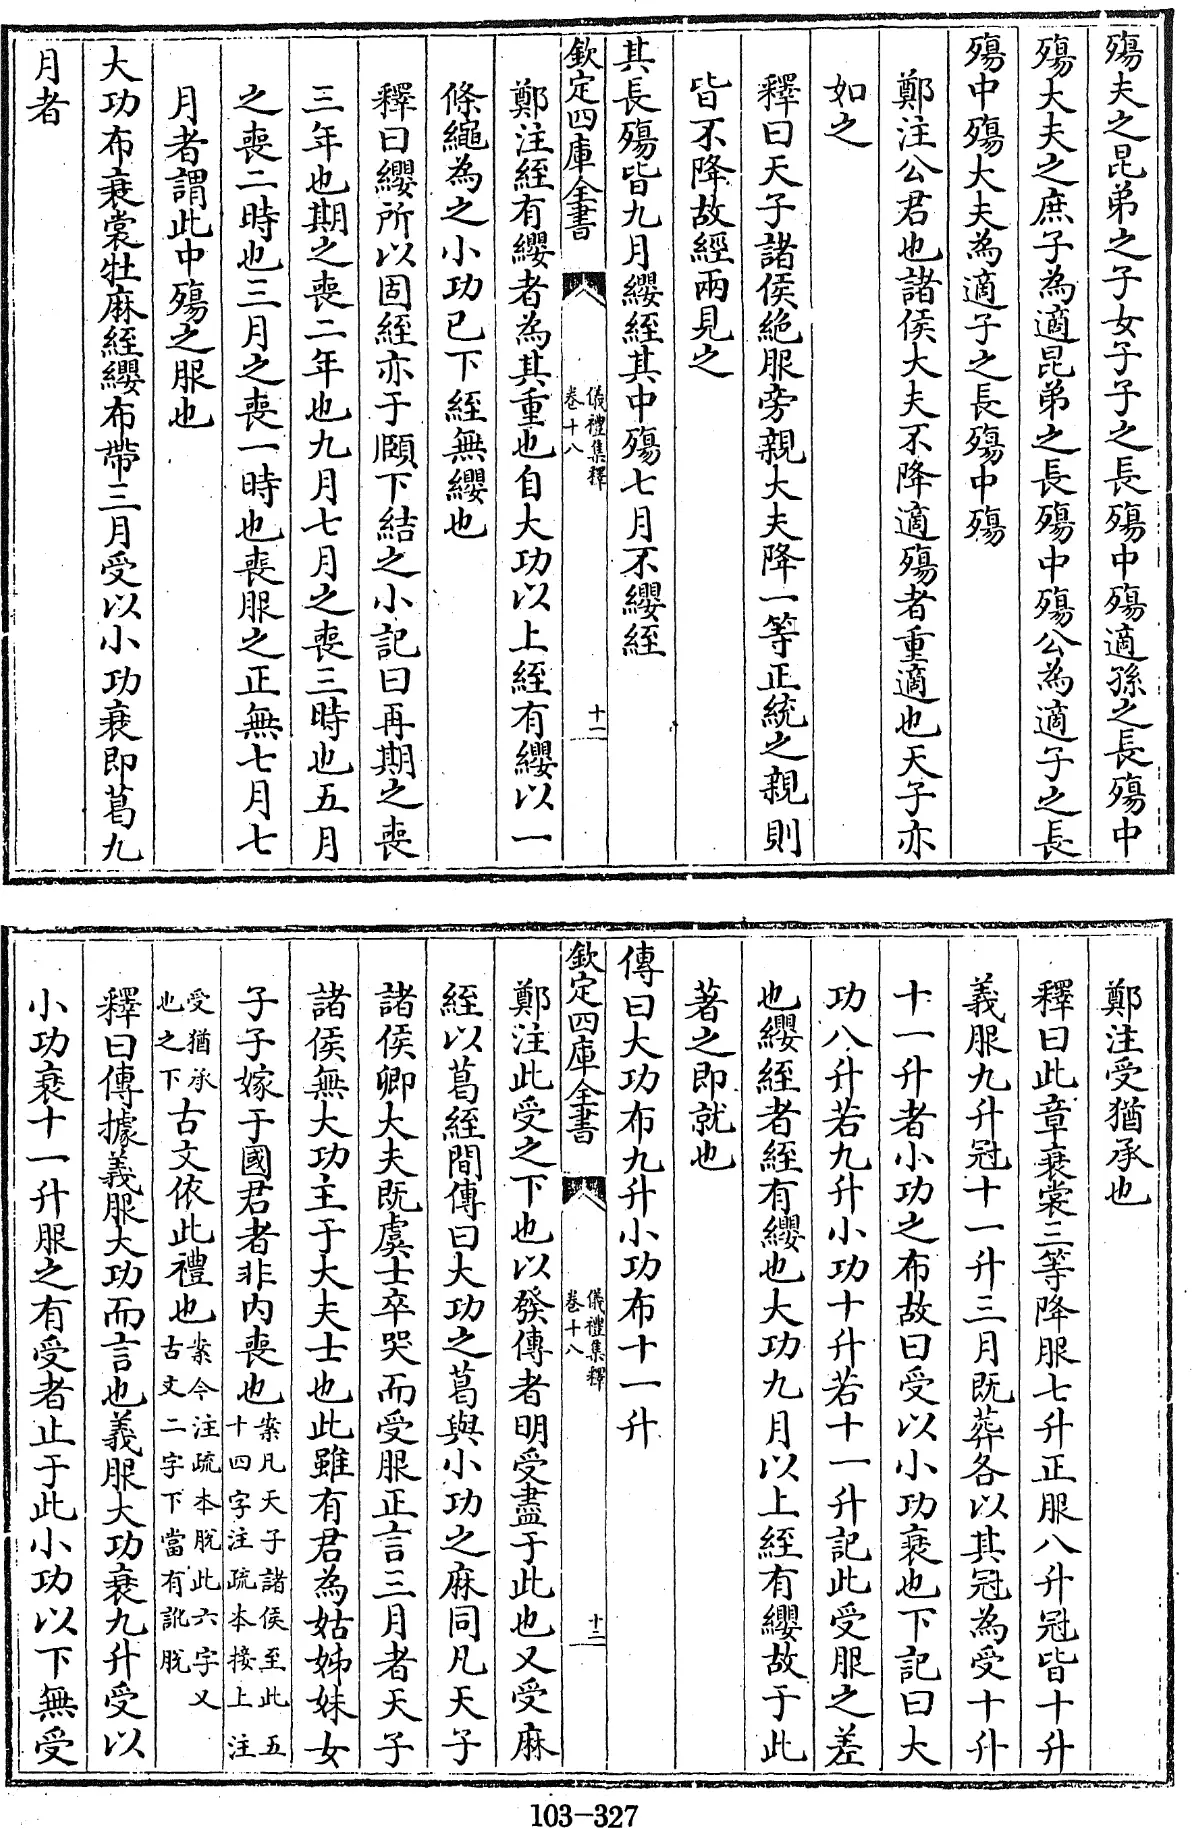 殤夫之昆弟之子女子子之長殤中殤適孫之長殤中
殤大夫之庶子為適昆弟之長殤中殤公為適子之長
殤中殤大夫為適子之長殤中殤
鄭注公君也諸侯大夫不降適殤者重適也天子亦
如之
釋曰天子諸侯絶服旁親大夫降一等正統之親則
皆不降故經兩見之
其長殤皆九月纓絰其中殤七月不纓絰
欽定四庫全書
儀禮集釋
卷十八
十一
鄭注絰有纓者為其重也自大功以上絰有纓以一
條繩為之小功已下絰無纓也
釋曰纓所以固絰亦于頤下結之小記曰再期之喪
三年也期之喪二年也九月七月之喪三時也五月
之喪二時也三月之喪一時也喪服之正無七月七
月者謂此中殤之服也
大功布衰裳牡麻絰纓布帶三月受以小功衰即葛九
月者
鄭注受猶承也
釋曰此章衰裳三等降服七升正服八升冠皆十升
義服九升冠十一升三月既葬各以其冠為受十升
十一升者小功之布故曰受以小功衰也下記曰大
功八升若九升小功十升若十一升記此受服之差
也纓絰者絰有纓也大功九月以上絰有纓故于此
著之即就也
傳曰大功布九升小功布十一升
欽定四庫全書
儀禮集釋
卷十八
十二
鄭注此受之下也以發傳者明受盡于此也又受麻
絰以葛絰間傳曰大功之葛與小功之麻同凡天子
諸侯卿大夫既虞士卒哭而受服正言三月者天子
諸侯無大功主于大夫士也此雖有君為姑姊妹女
子子嫁于國君者非内喪也案凡天子諸侯至此五十四字注疏本接上注
受猶承也之下古文依此禮也案今注疏本脫此六字又古文二字下當有訛脫
釋曰傳據義服大功而言也義服大功衰九升受以
小功衰十一升服之有受者止于此小功以下無受
103-327